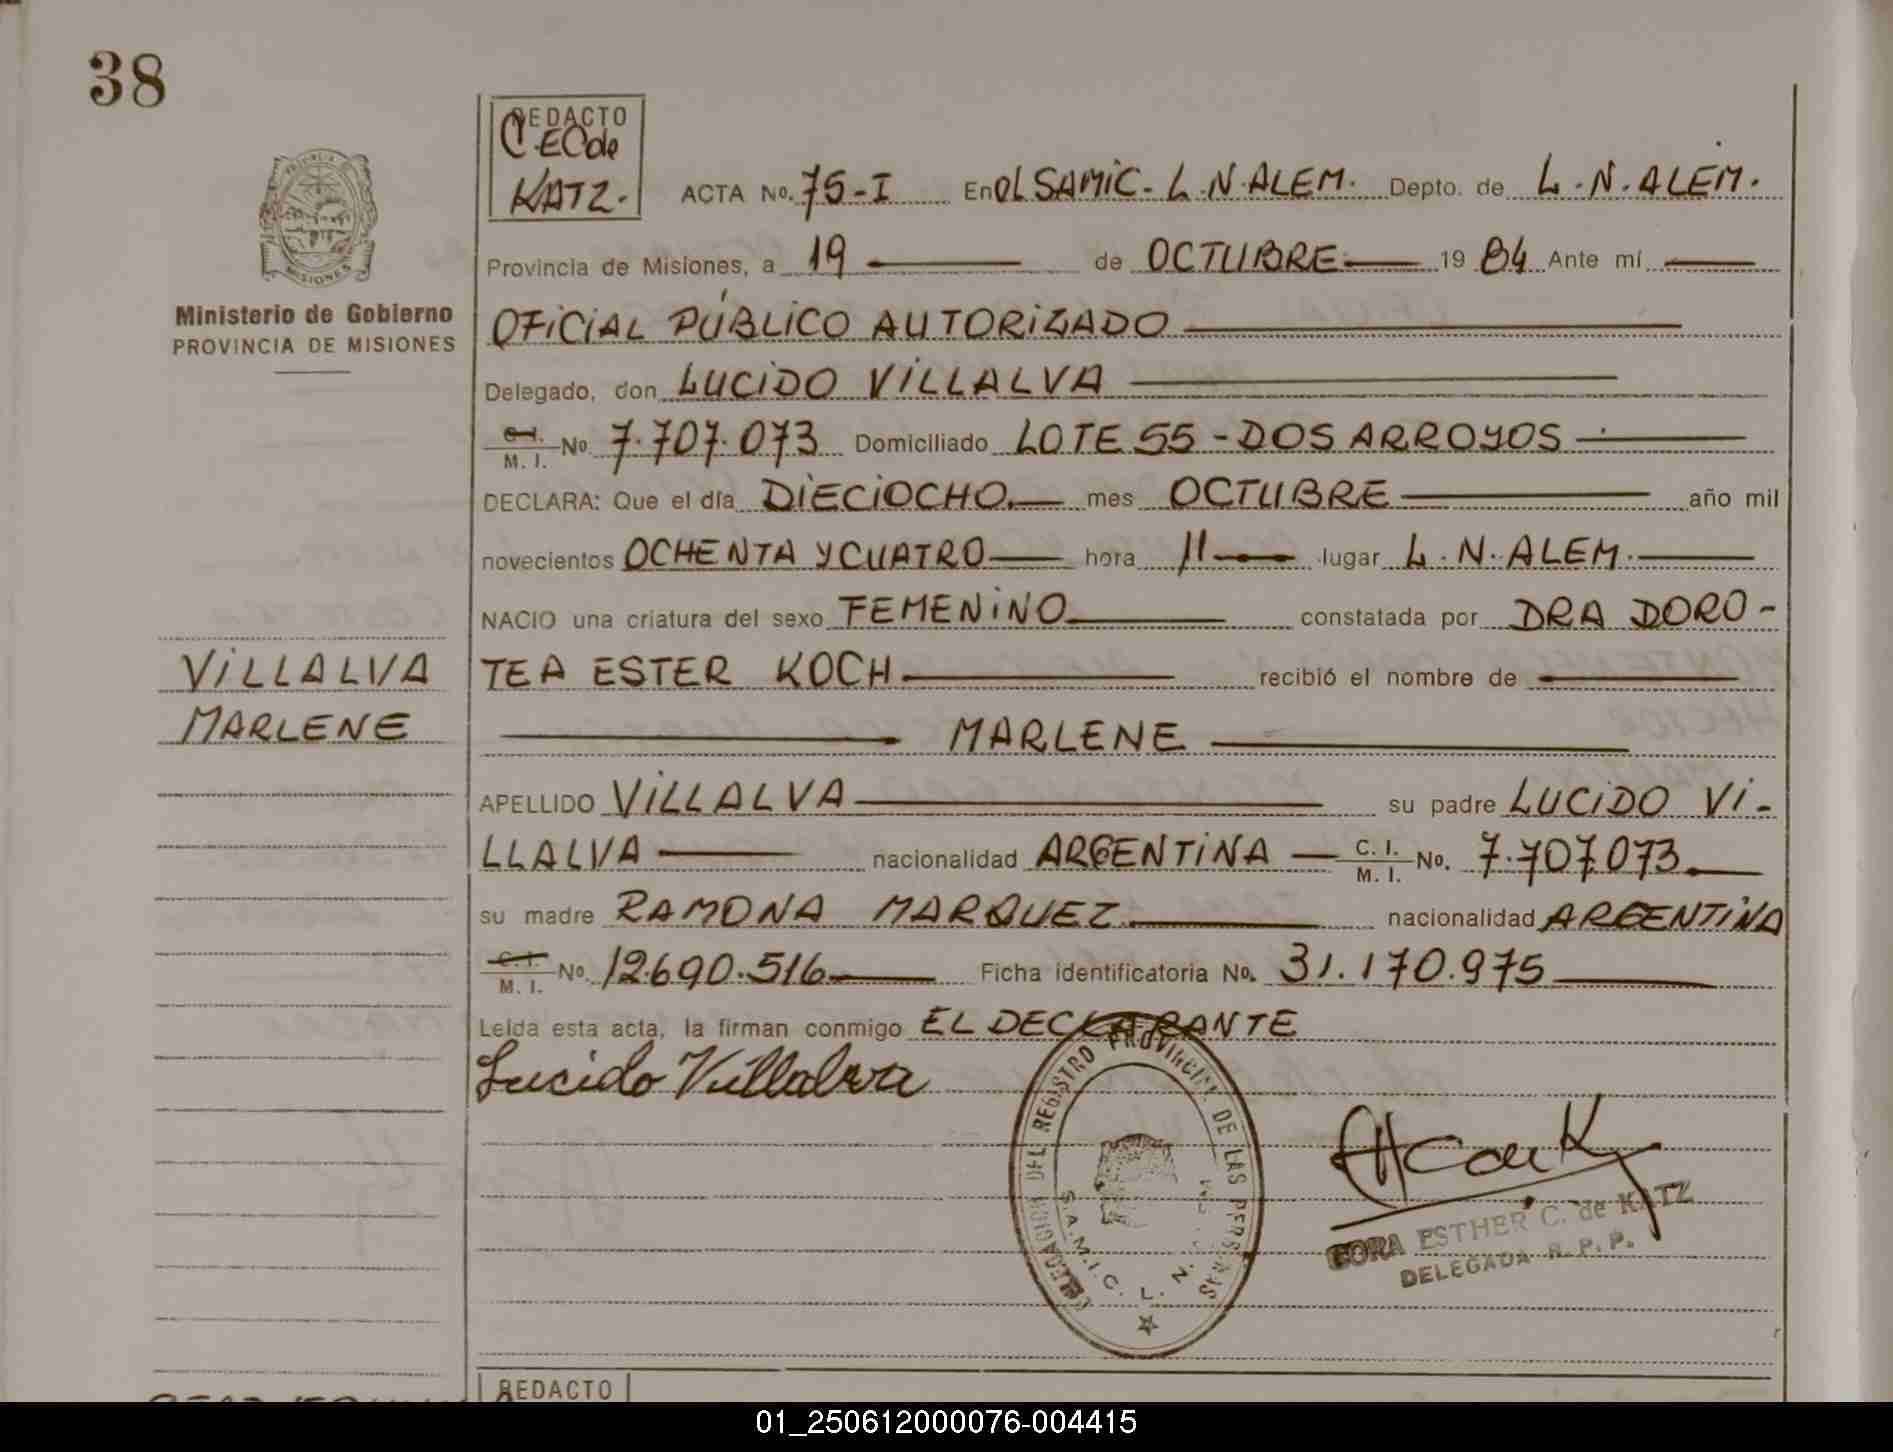 38
REDACTO
C.E.C de
KATZ.
ACTA No. 75-I En OL SAMIC. L.N.ALEM. Depto. de L.N.ALEM.
Provincia de Misiones, a 19 de OCTUBRE 1984 Ante mí
Ministerio de Gobierno
PROVINCIA DE MISIONES
OFICIAL PÚBLICO AUTORIZADO
Delegado, don LUCIDO VILLALVA
C.I. M. I. No. 7.707.073 Domiciliado LOTE 55 - DOS ARROYOS
DECLARA: Que el día DIECIOCHO. mes OCTUBRE año mil
novecientos OCHENTA Y CUATRO hora 11 lugar L.N.ALEM.
NACIO una criatura del sexo FEMENINO constatada por DRA DORO-
TEA ESTER KOCH recibió el nombre de
VILLALVA
MARLENE
MARLENE
APELLIDO VILLALVA su padre LUCIDO VI-
LLALVA nacionalidad ARGENTINA C. I. M. I. No. 7.707.073
su madre RAMONA MARQUEZ nacionalidad ARGENTINA
C.I. M. I. No. 12.690.516 Ficha identificatoria No. 31.170.975
Leída esta acta, la firman conmigo EL DECLARANTE
Lucido Villalva
DELEGACION DEL REGISTRO PROVINCIAL DE LAS PERSONAS
S.A.M.I.C. L. N.
CORA ESTHER C. de KATZ
DELEGADA R. P. P.
REDACTO
01_250612000076-004415